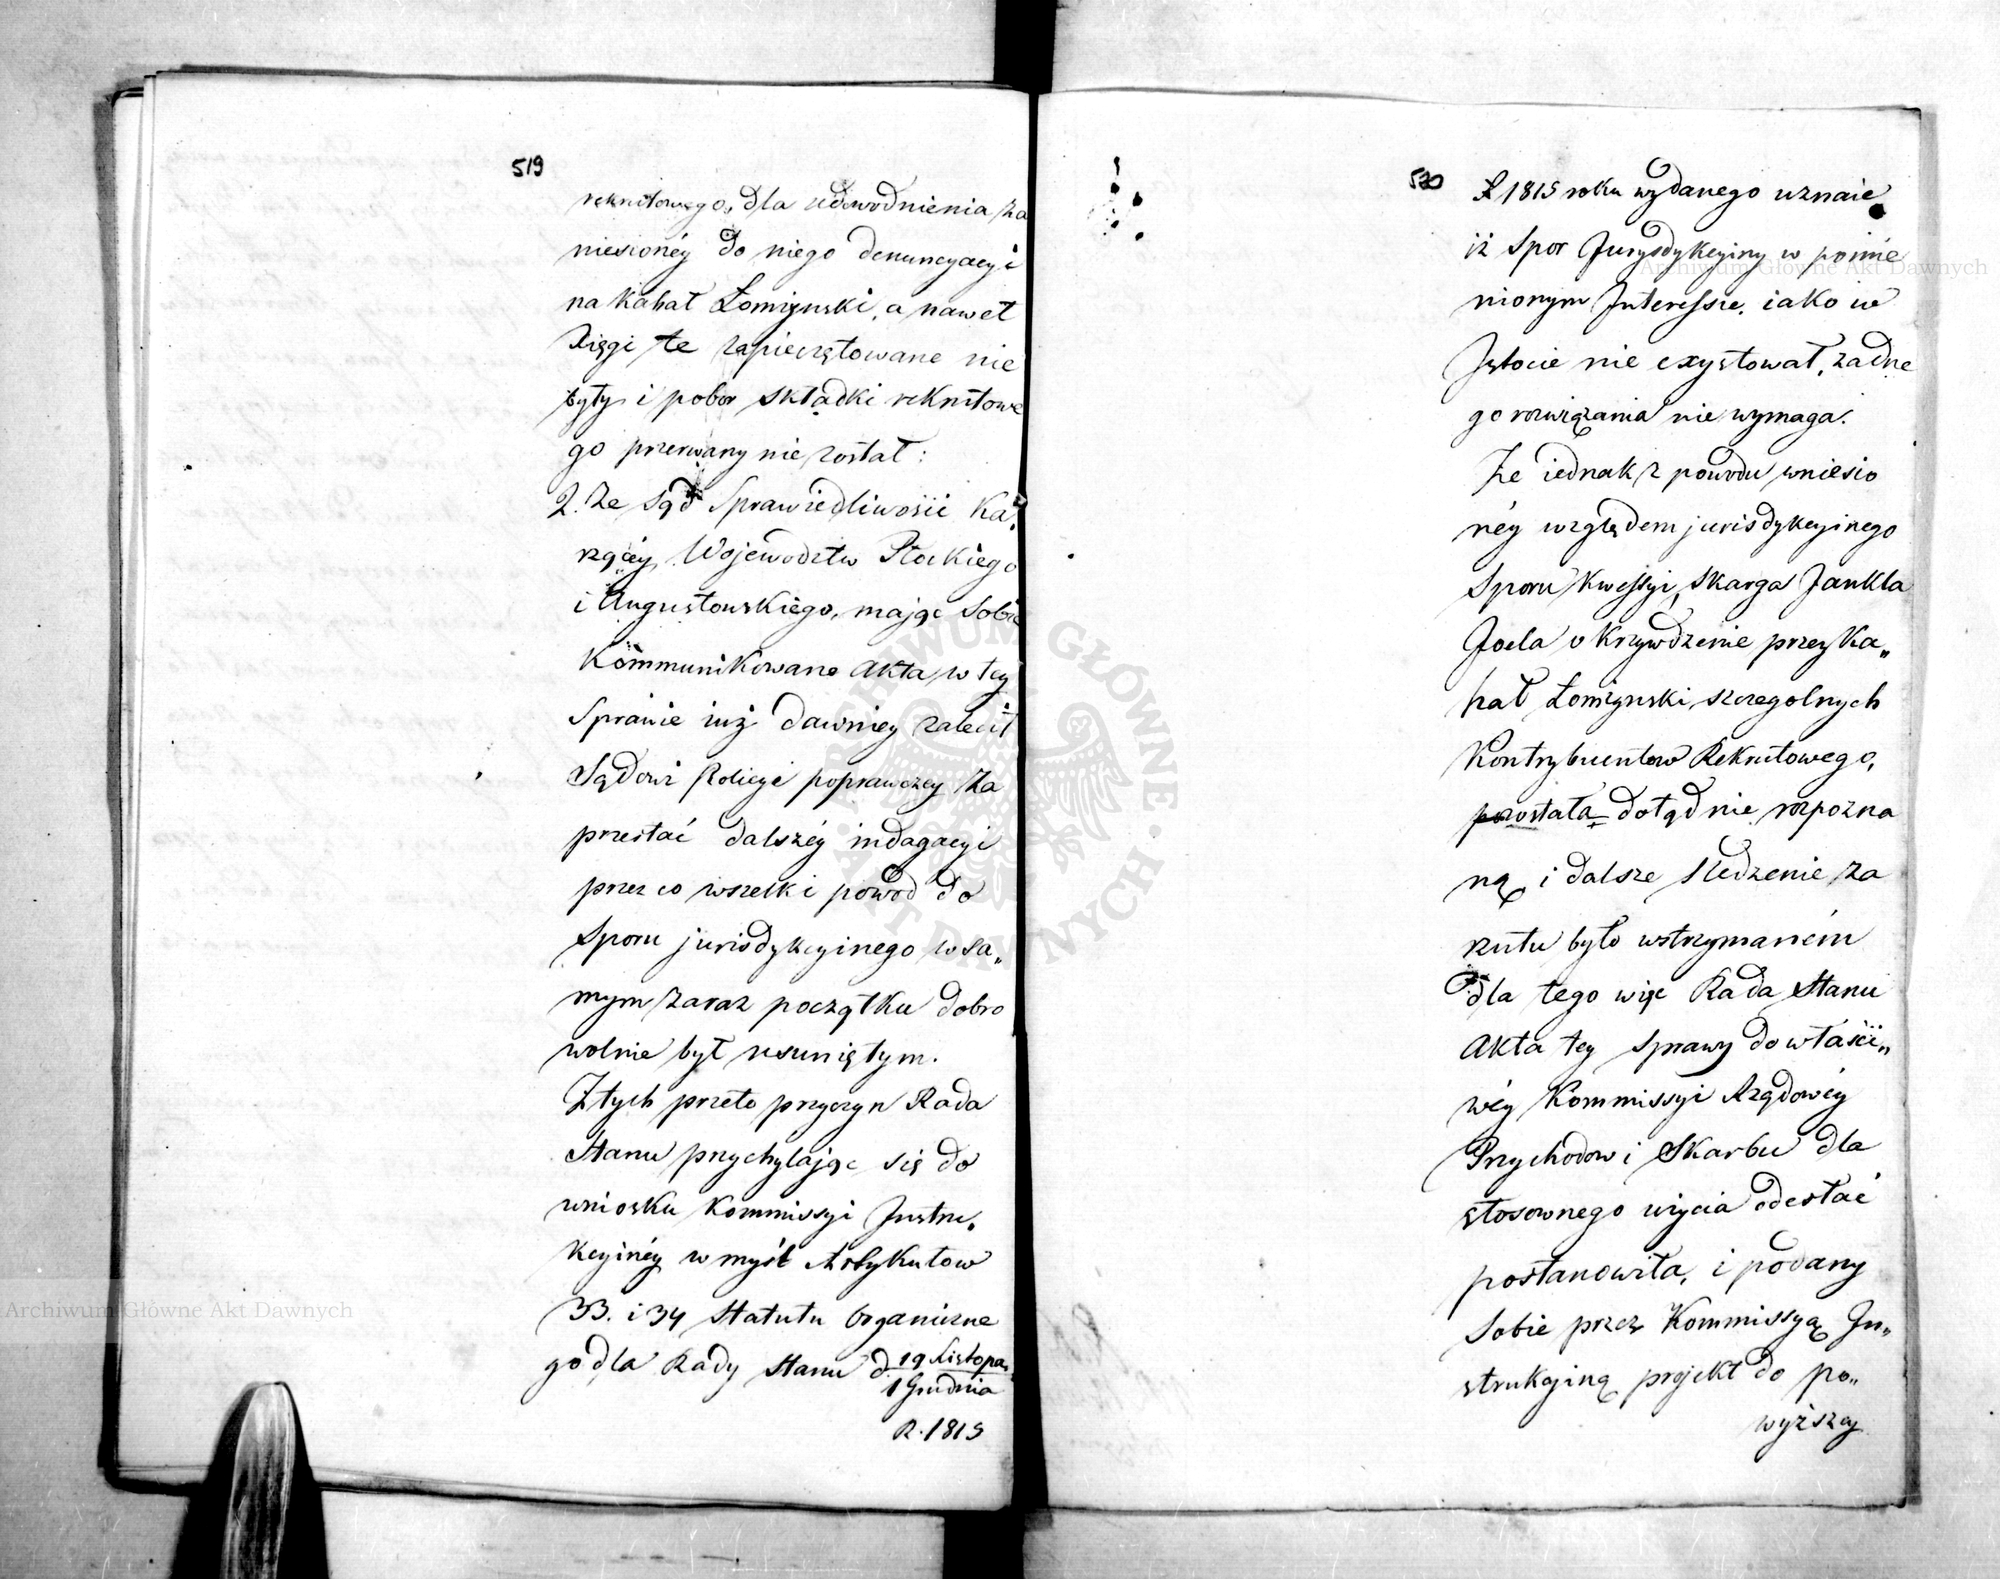 519
rekrutowego, dla udowodnienia za
niesionéy do niego denuncyacyi
na Kahał Łomżynski, a nawet
Xięgi te zapieczętowane nie
były i pobor składki rekrutowe
go przerwany nie został:
2. Ze Sąd Sprawiedliwości Ka„
rzącéy Województw Płockiego
i Augustowskiego, mając Sobie
Kommunikowane Akta w tey
Sprawie iuż dawniey zalecił
Sądowi Policyi poprawczey za
przestać dalszéy indagacyi
przez co wszelki powód do
Sporu jurisdykcyinego w sa„
mym zaraz początku dobro
wolnie był usuniętym.
Z tych przeto przyczyn Rada
Stanu przychylając się do
wniosku Kommissyi Instru„
kcyinéy w myśl Artykułow
33. i 34 Statutu organiczne
go dla Rady Stanu d. 19 Listopa„
1 Grudnia
R. 1815
520
R 1815 roku wydanego uznaie
iż Spor Jurysdykcyiny w pomie
nionym Interessie, iako w
Istocie nie exystował, żadne
go rozwiązania nie wymaga.
Że iednak z powodu wniesio
néy względem jurisdykcyinego
Sporu Kwessyi, Skarga Jankla
Joela o krzywdzenie przez Ka„
hał Łomżynski szczegolnych
Kontrybuentow Rekrutowego,
pozostała dotąd nie rozpozna
ną i dalsze Sledzenie za
rzutu było wstrzymaném
dla tego więc Rada Stanu
Akta tey Sprawy do właści„
wéy Kommissyi Rządowéy
Przychodow i Skarbu dla
stosownego użycia odesłać
postanowiła, i podany
Sobie przez Kommissyą In„
strukcyiną projekt do po„
wyższey
Archiwum Główne Akt Dawnych
Archiwum Główne Akt Dawnych
ARCHIWUM GŁÓWNE · AKT DAWNYCH ·